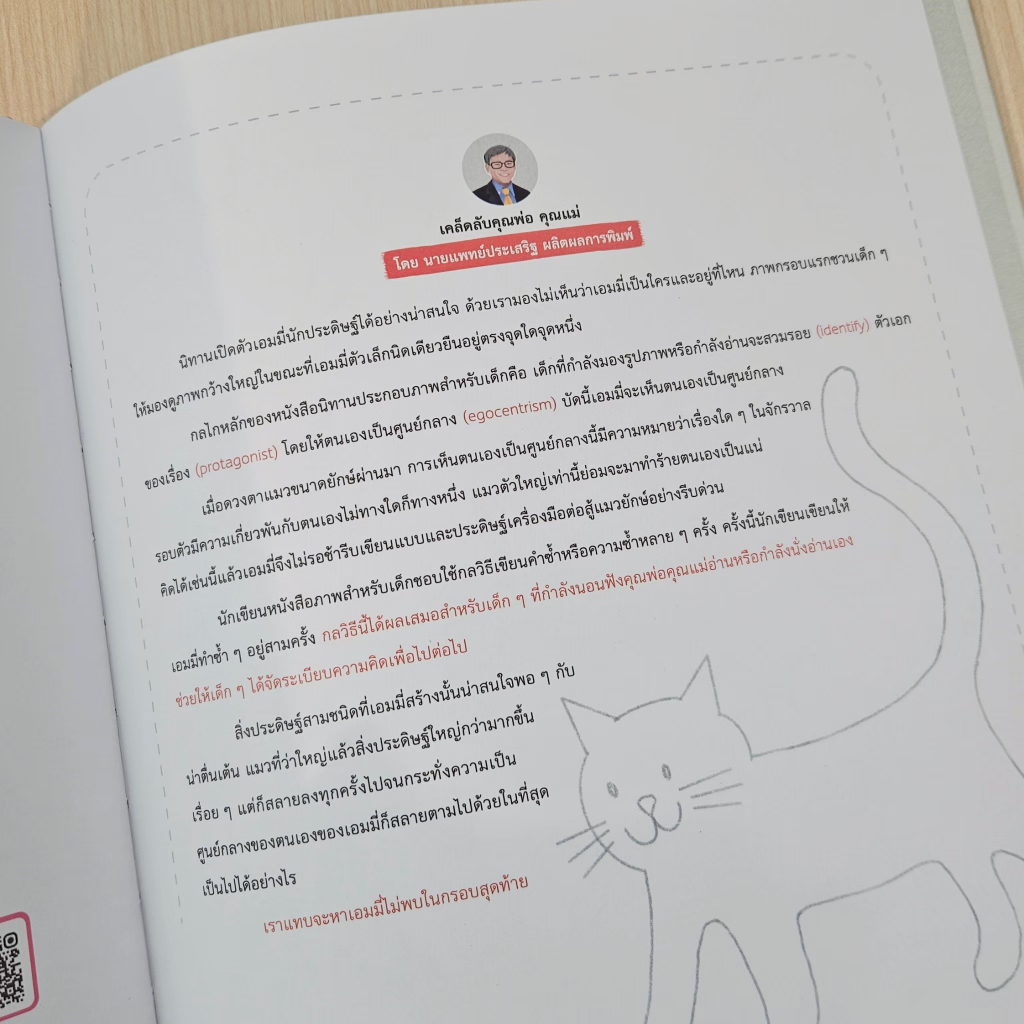 เคล็ดลับคุณพ่อ คุณแม่
โดย นายแพทย์ประเสริฐ ผลิตผลการพิมพ์
นิทานเปิดตัวเอมมี่นักประดิษฐ์ได้อย่างน่าสนใจ ด้วยเรามองไม่เห็นว่าเอมมี่เป็นใครและอยู่ที่ไหน ภาพกรอบแรกชวนเด็ก ๆ
ให้มองดูภาพกว้างใหญ่ในขณะที่เอมมี่ตัวเล็กนิดเดียวยืนอยู่ตรงจุดใดจุดหนึ่ง
กลไกหลักของหนังสือนิทานประกอบภาพสำหรับเด็กคือ เด็กที่กำลังมองรูปภาพหรือกำลังอ่านจะสวมรอย (identify) ตัวเอก
ของเรื่อง (protagonist) โดยให้ตนเองเป็นศูนย์กลาง (egocentrism) บัดนี้เอมมี่จะเห็นตนเองเป็นศูนย์กลาง
เมื่อดวงตาแมวขนาดยักษ์ผ่านมา การเห็นตนเองเป็นศูนย์กลางนี้มีความหมายว่าเรื่องใด ๆ ในจักรวาล
รอบตัวมีความเกี่ยวพันกับตนเองไม่ทางใดก็ทางหนึ่ง แมวตัวใหญ่เท่านี้ย่อมจะมาทำร้ายตนเองเป็นแน่
คิดได้เช่นนี้แล้วเอมมี่จึงไม่รอช้ารีบเขียนแบบและประดิษฐ์เครื่องมือต่อสู้แมวยักษ์อย่างรีบด่วน
นักเขียนหนังสือภาพสำหรับเด็กชอบใช้กลวิธีเขียนคำซ้ำหรือความซ้ำหลาย ๆ ครั้ง ครั้งนี้นักเขียนเขียนให้
เอมมี่ทำซ้ำ ๆ อยู่สามครั้ง กลวิธีนี้ได้ผลเสมอสำหรับเด็ก ๆ ที่กำลังนอนฟังคุณพ่อคุณแม่อ่านหรือกำลังนั่งอ่านเอง
ช่วยให้เด็ก ๆ ได้จัดระเบียบความคิดเพื่อไปต่อไป
สิ่งประดิษฐ์สามชนิดที่เอมมี่สร้างนั้นน่าสนใจพอ ๆ กับ
น่าตื่นเต้น แมวที่ว่าใหญ่แล้วสิ่งประดิษฐ์ใหญ่กว่ามากขึ้น
เรื่อย ๆ แต่ก็สลายลงทุกครั้งไปจนกระทั่งความเป็น
ศูนย์กลางของตนเองของเอมมี่ก็สลายตามไปด้วยในที่สุด
เป็นไปได้อย่างไร
เราแทบจะหาเอมมี่ไม่พบในกรอบสุดท้าย